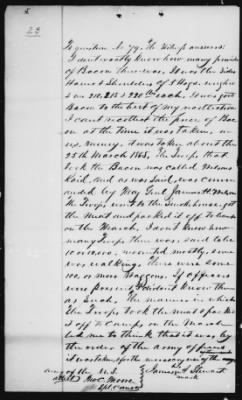 23
To question No 79. The Witness answers:
I don't exactly know how many pounds
of Bacon there was. It was the Sides
Hams & Shoulders of 3 Hogs weighin
210, 215 & 220 lbs each. It was good
Bacon to the best of my recollection
I can't recollect the price of Bac
on at the time it was taken, in
U.S. money. It was taken about the
25th March 1865. The Troops that
took the Bacon was called Wilson's
Raid, and as was said, was comm
anded by Maj Genl James H Wilson
the Troops went to the Smokehouse, got
the Meat and packed it off to Camp
on the March. I don't know how
many Troops there was, said to be
10 or 12,000, mounted mostly, some
was walking, there was some
100, or more Waggons. If officers
was present I didn't know them
as Such. The manner in which
the Troops took the meat & packed
it off to Camp on the March
led me to think that it was by
the order of the army officers
it was taken for the necessary use of the
army of the U.S.
attest his
James Stewart
mark
Moore
Spl. Comr